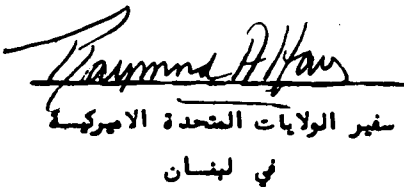 Raymond A Hare
سفير الولايات المتحدة الاميركية
في لبنان